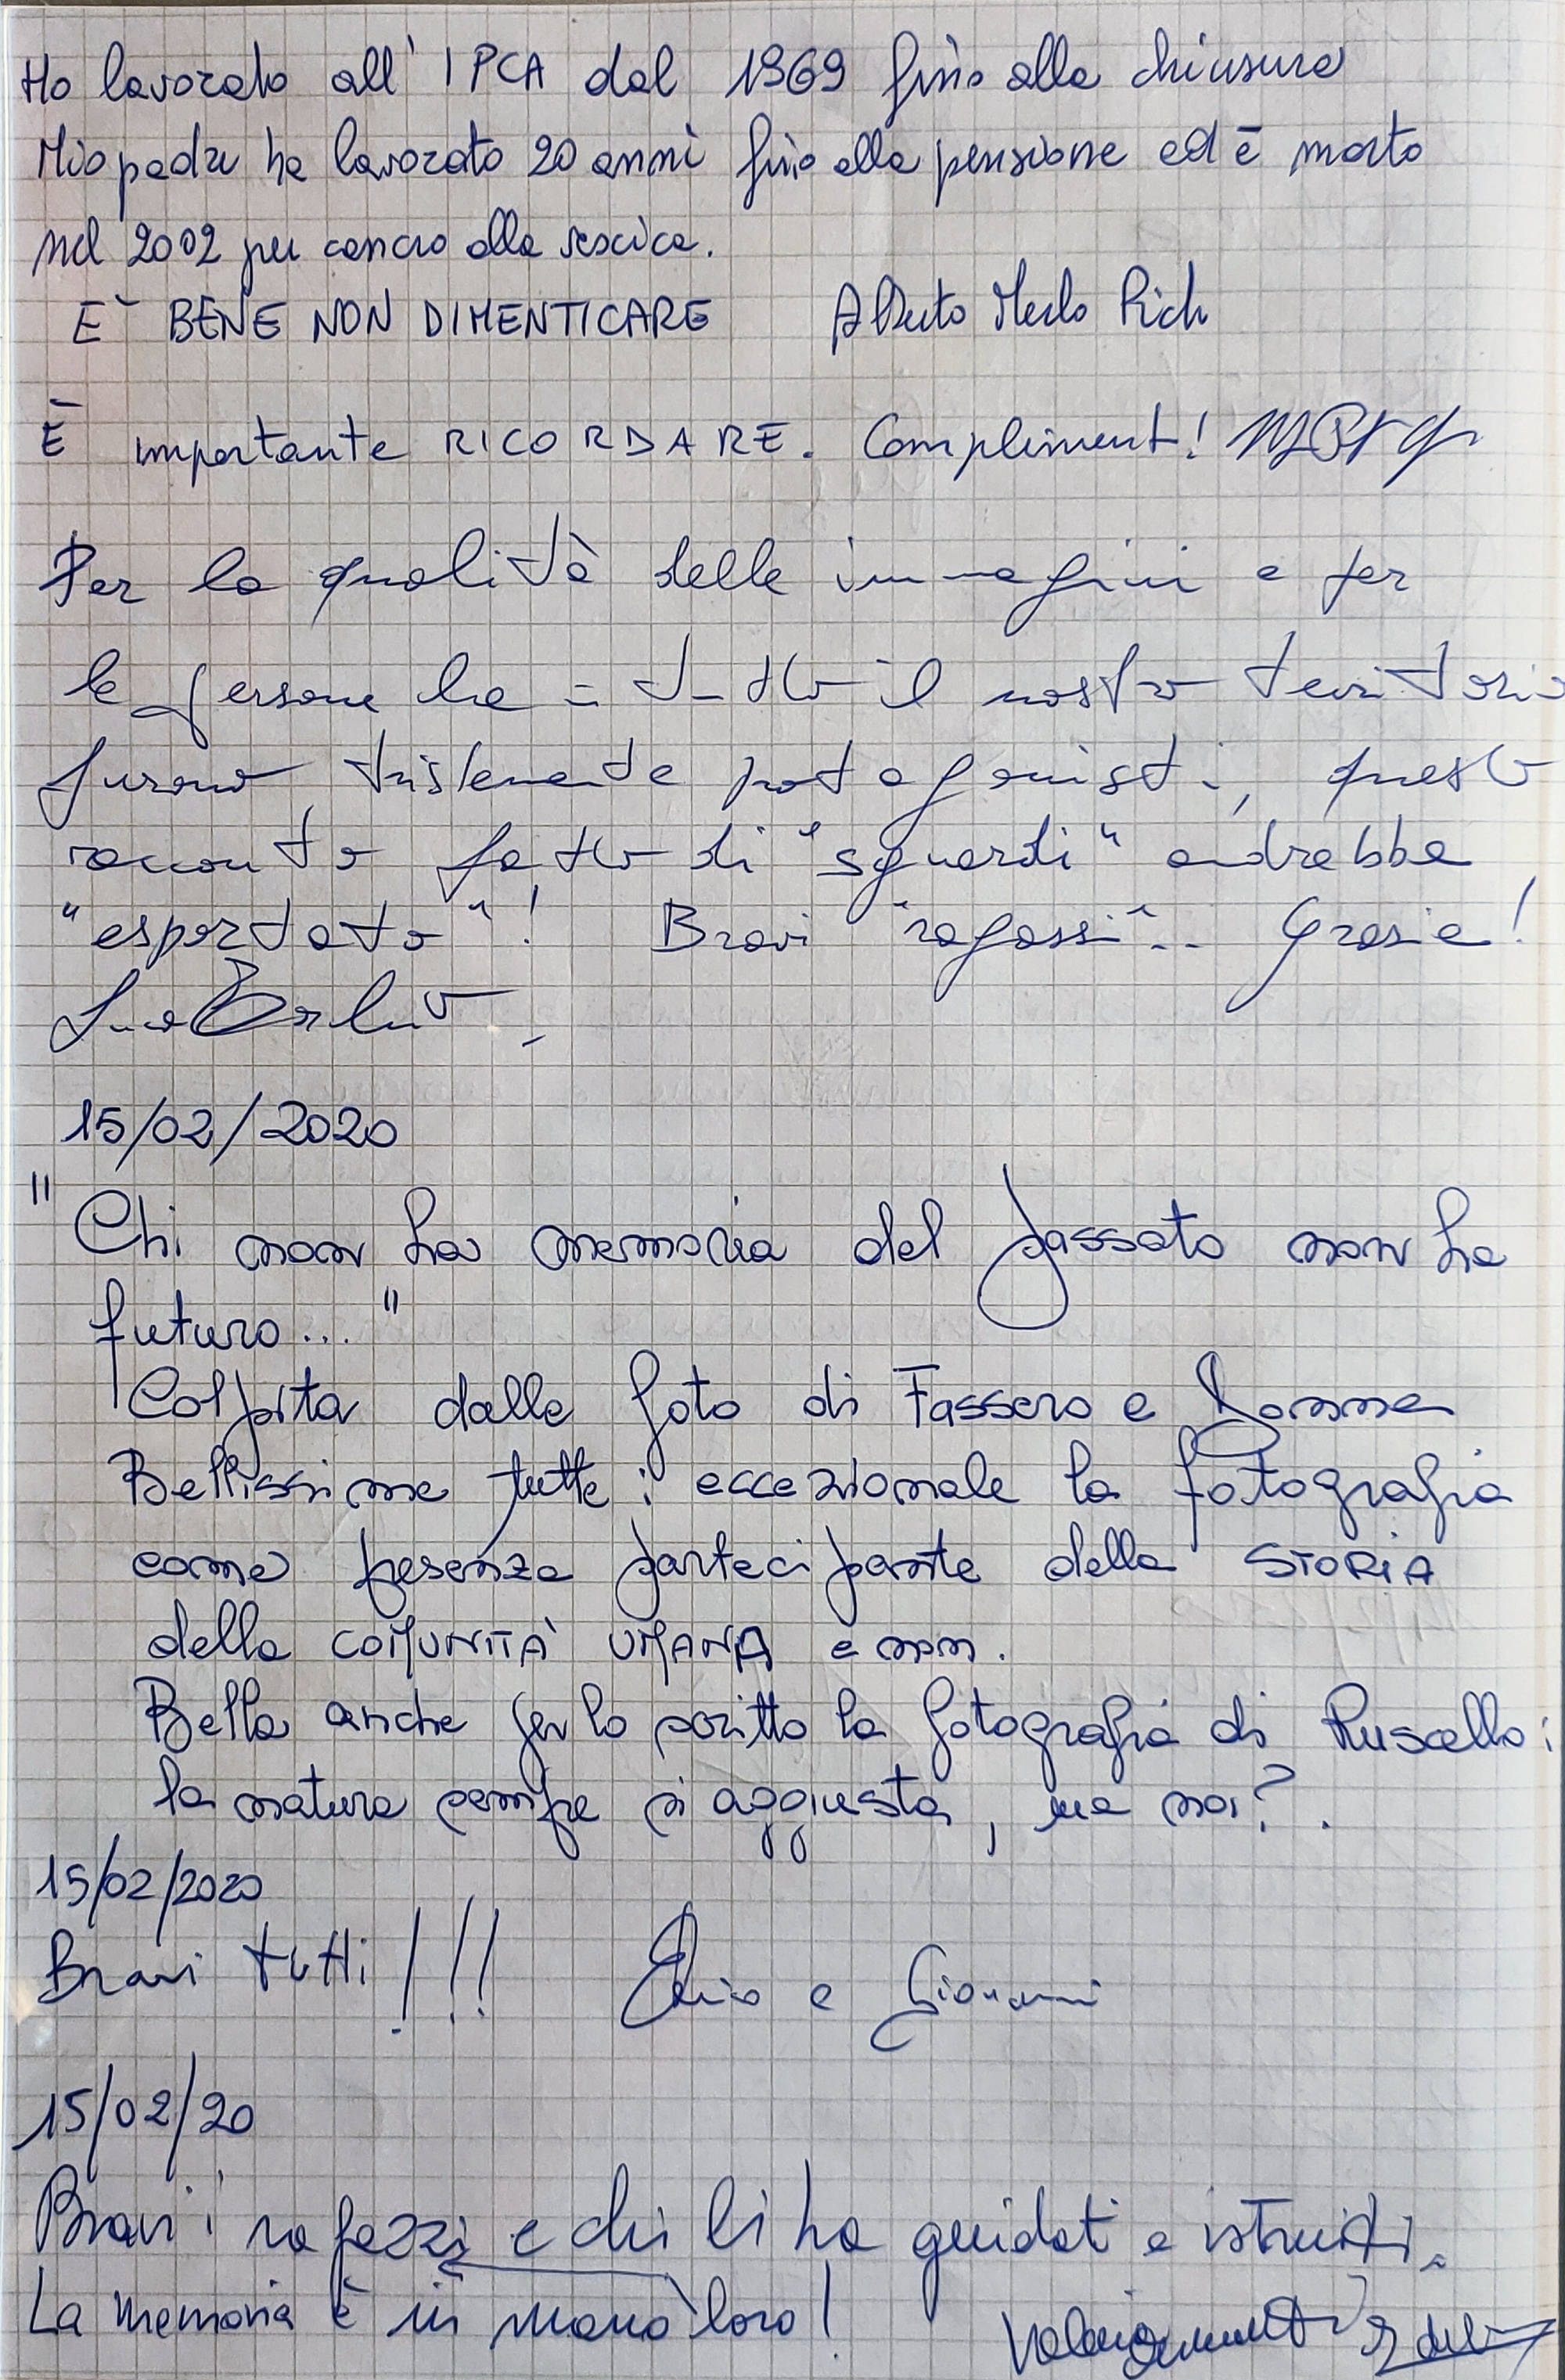 Ho lavorato all'IPCA dal 1969 fino alla chiusura
Mio padre ha lavorato 20 anni fino alla pensione ed è morto
nel 2002 per cancro alla vescica.
E' BENE NON DIMENTICARE Alberto Merlo Pich
È importante RICORDARE. Complimenti!
Per la qualità delle immagini e per
le persone che in tutto il nostro territorio
furono tristemente protagonisti, questo
racconto fatto di "sguardi" andrebbe
"esportato"! Bravi "ragassi".. Grasie!
15/02/2020
"Chi non ha memoria del passato non ha
futuro..."
Colpita dalle foto di Fassero e Donna
Bellissime tutte: eccezionale la fotografia
come presenza partecipante della STORIA
della COMUNITÀ UMANA e non.
Bella anche per lo scritto la fotografia di Ruscello:
la natura sempre si aggiusta, ma noi?.
15/02/2020
Bravi tutti!!! e Giovanni
15/02/20
Bravi i ragazzi e chi li ha guidati e istruiti.
La memoria è in mano loro! Valeria